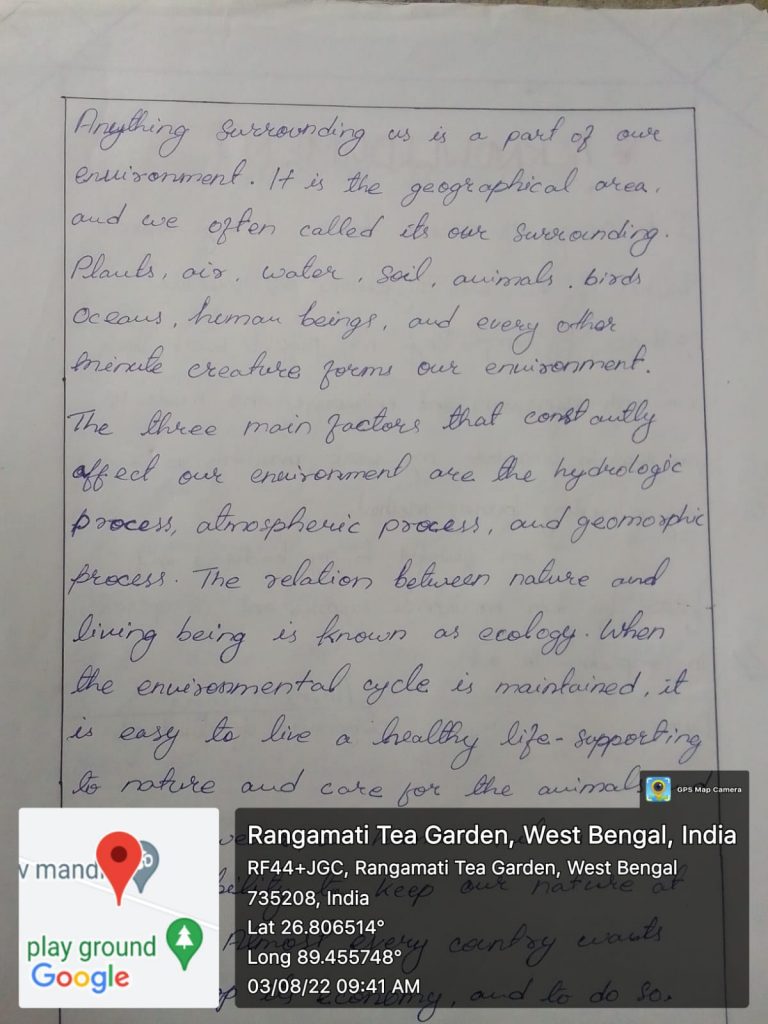 Anything surrounding us is a part of our
environment. It is the geographical area,
and we often called its our surrounding.
Plants, air, water, soil, animals, birds
oceans, human beings, and every other
minute creature forms our environment.
The three main factors that constantly
affect our environment are the hydrologic
process, atmospheric process, and geomorphic
process. The relation between nature and
living being is known as ecology. When
the environmental cycle is maintained, it
is easy to live a healthy life-supporting
to nature and care for the animals
to keep our nature at
Almost every country wants
economy, and to do so.
GPS Map Camera
v mandi
play ground
Google
Rangamati Tea Garden, West Bengal, India
RF44+JGC, Rangamati Tea Garden, West Bengal
735208, India
Lat 26.806514°
Long 89.455748°
03/08/22 09:41 AM